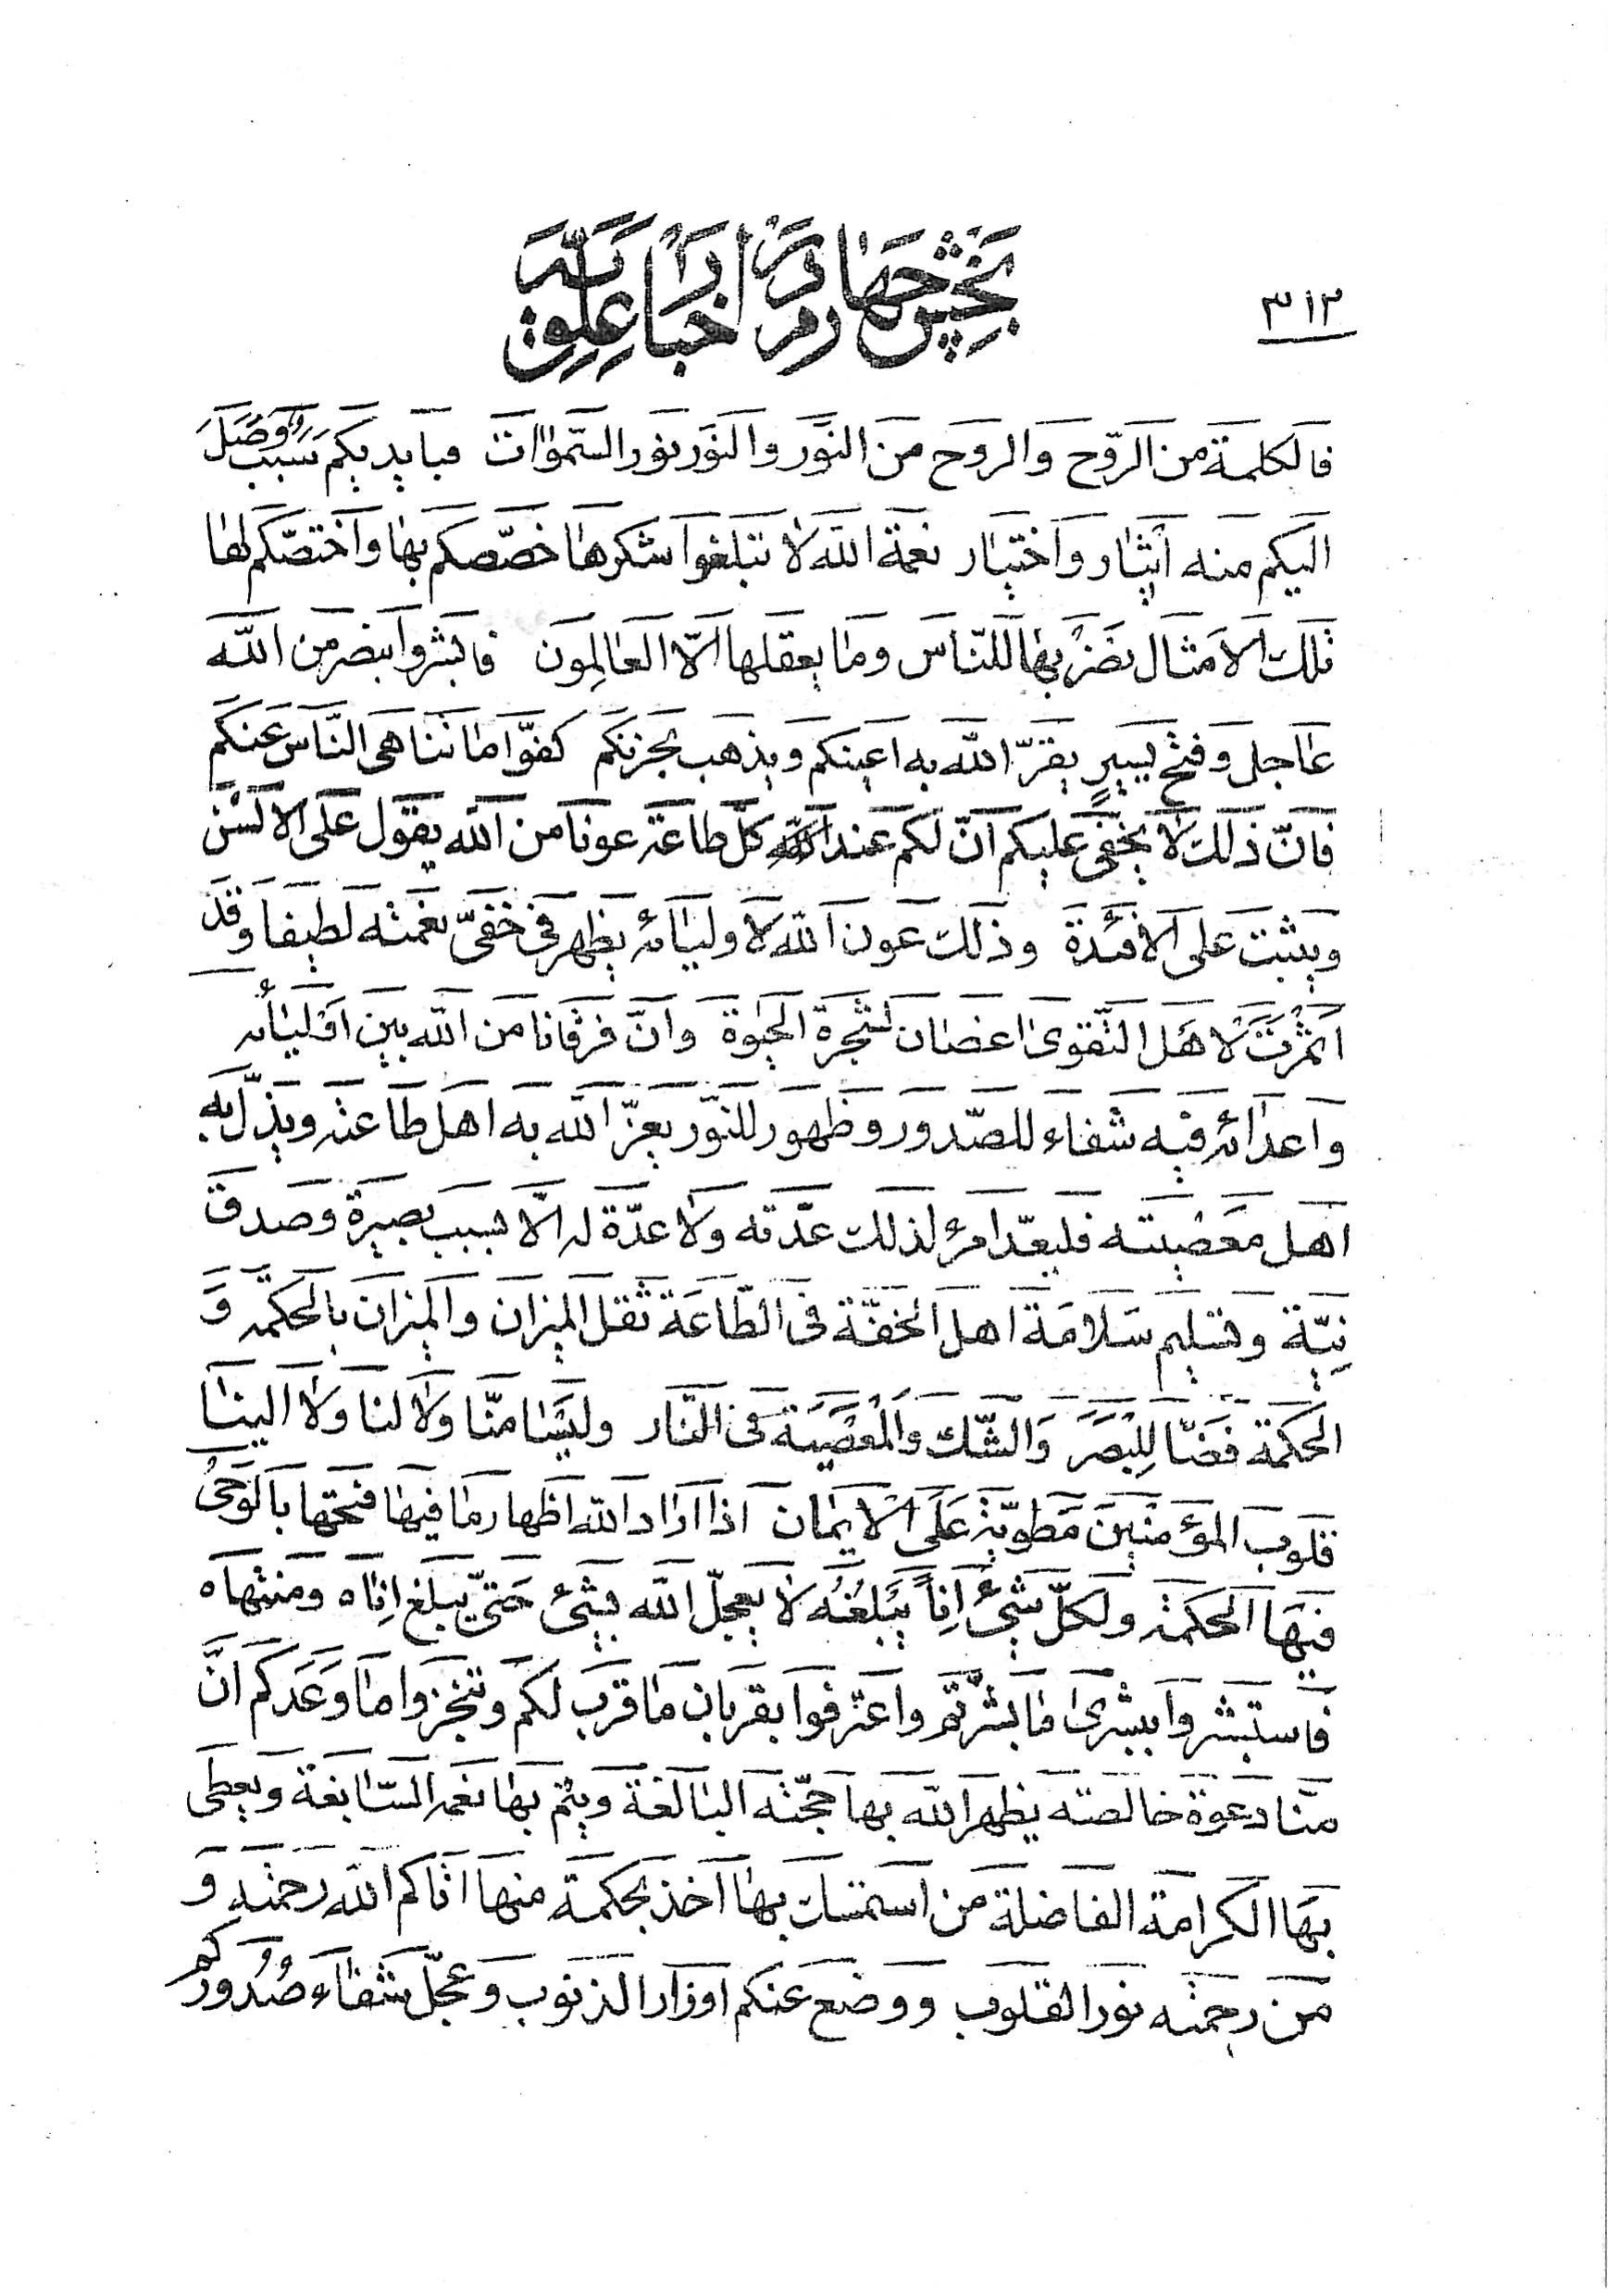 ٣١٢
بخش چهارم در اخبار علویه
فالكلمة من الروح والروح من النور والنور نور السموات فبايديكم سبب وصل
اليكم منه ايثار واختيار نعمة الله لا تبلغوا شكرها خصّصكم بها واختصّكم لها
تلك الامثال نضربها للنّاس وما يعقلها الّا العالمون فابشروا بنصر من الله
عاجل وفتح يسير يقرّ الله به اعينكم ويذهب بحزنكم كفّوا ما تناهى النّاس عنكم
فانّ ذلك لا يخفى عليكم انّ لكم عند الله كلّ طاعة عونا من الله يقول على الالسن
ويثبت على الافئدة وذلك عون الله لاوليائه يظهر فى خفىّ نعمته لطيفا وقد
اثمرت لاهل التّقوى اغصان شجرة الحيوة وانّ فرقانا من الله بين اوليائه
واعدائه فيه شفاء للصّدور وظهور للنّور يعزّ الله به اهل طاعته ويذلّ به
اهل معصيته فليعدّ امرؤ لذلك عدّته ولا عدّة له الّا بسبب بصيرة وصدق
نيّة وتسليم سلامة اهل الخفّة فى الطّاعة ثقل الميزان والميزان بالحكمة و
الحكمة فضّا للبصر والشّك والمعصية فى النّار وليسا منّا ولا لنا ولا الينا
قلوب المؤمنين مطويّة على الايمان اذا اراد الله اظهار ما فيها فتحها بالوحى
فيها الحكمة ولكلّ شىء انا يبلغه لا يعجلّ الله بشىء حتىّ يبلغ اناه ومنتهاه
فاستبشروا ببشرى ما بشّرتم واعترفوا بقربان ما قرب لكم وتنجزوا ما وعدكم انّ
منّا دعوة خالصته يظهر الله بها حجّته البالغة ويتم بها نعمه السّابغة ويعطى
بها الكرامة الفاضلة من استمسك بها اخذ بحكمة منها اتاكم الله رحمته و
من رحمته نور القلوب ووضع عنكم اوزار الذنوب وعجّل شفاء صدوركم